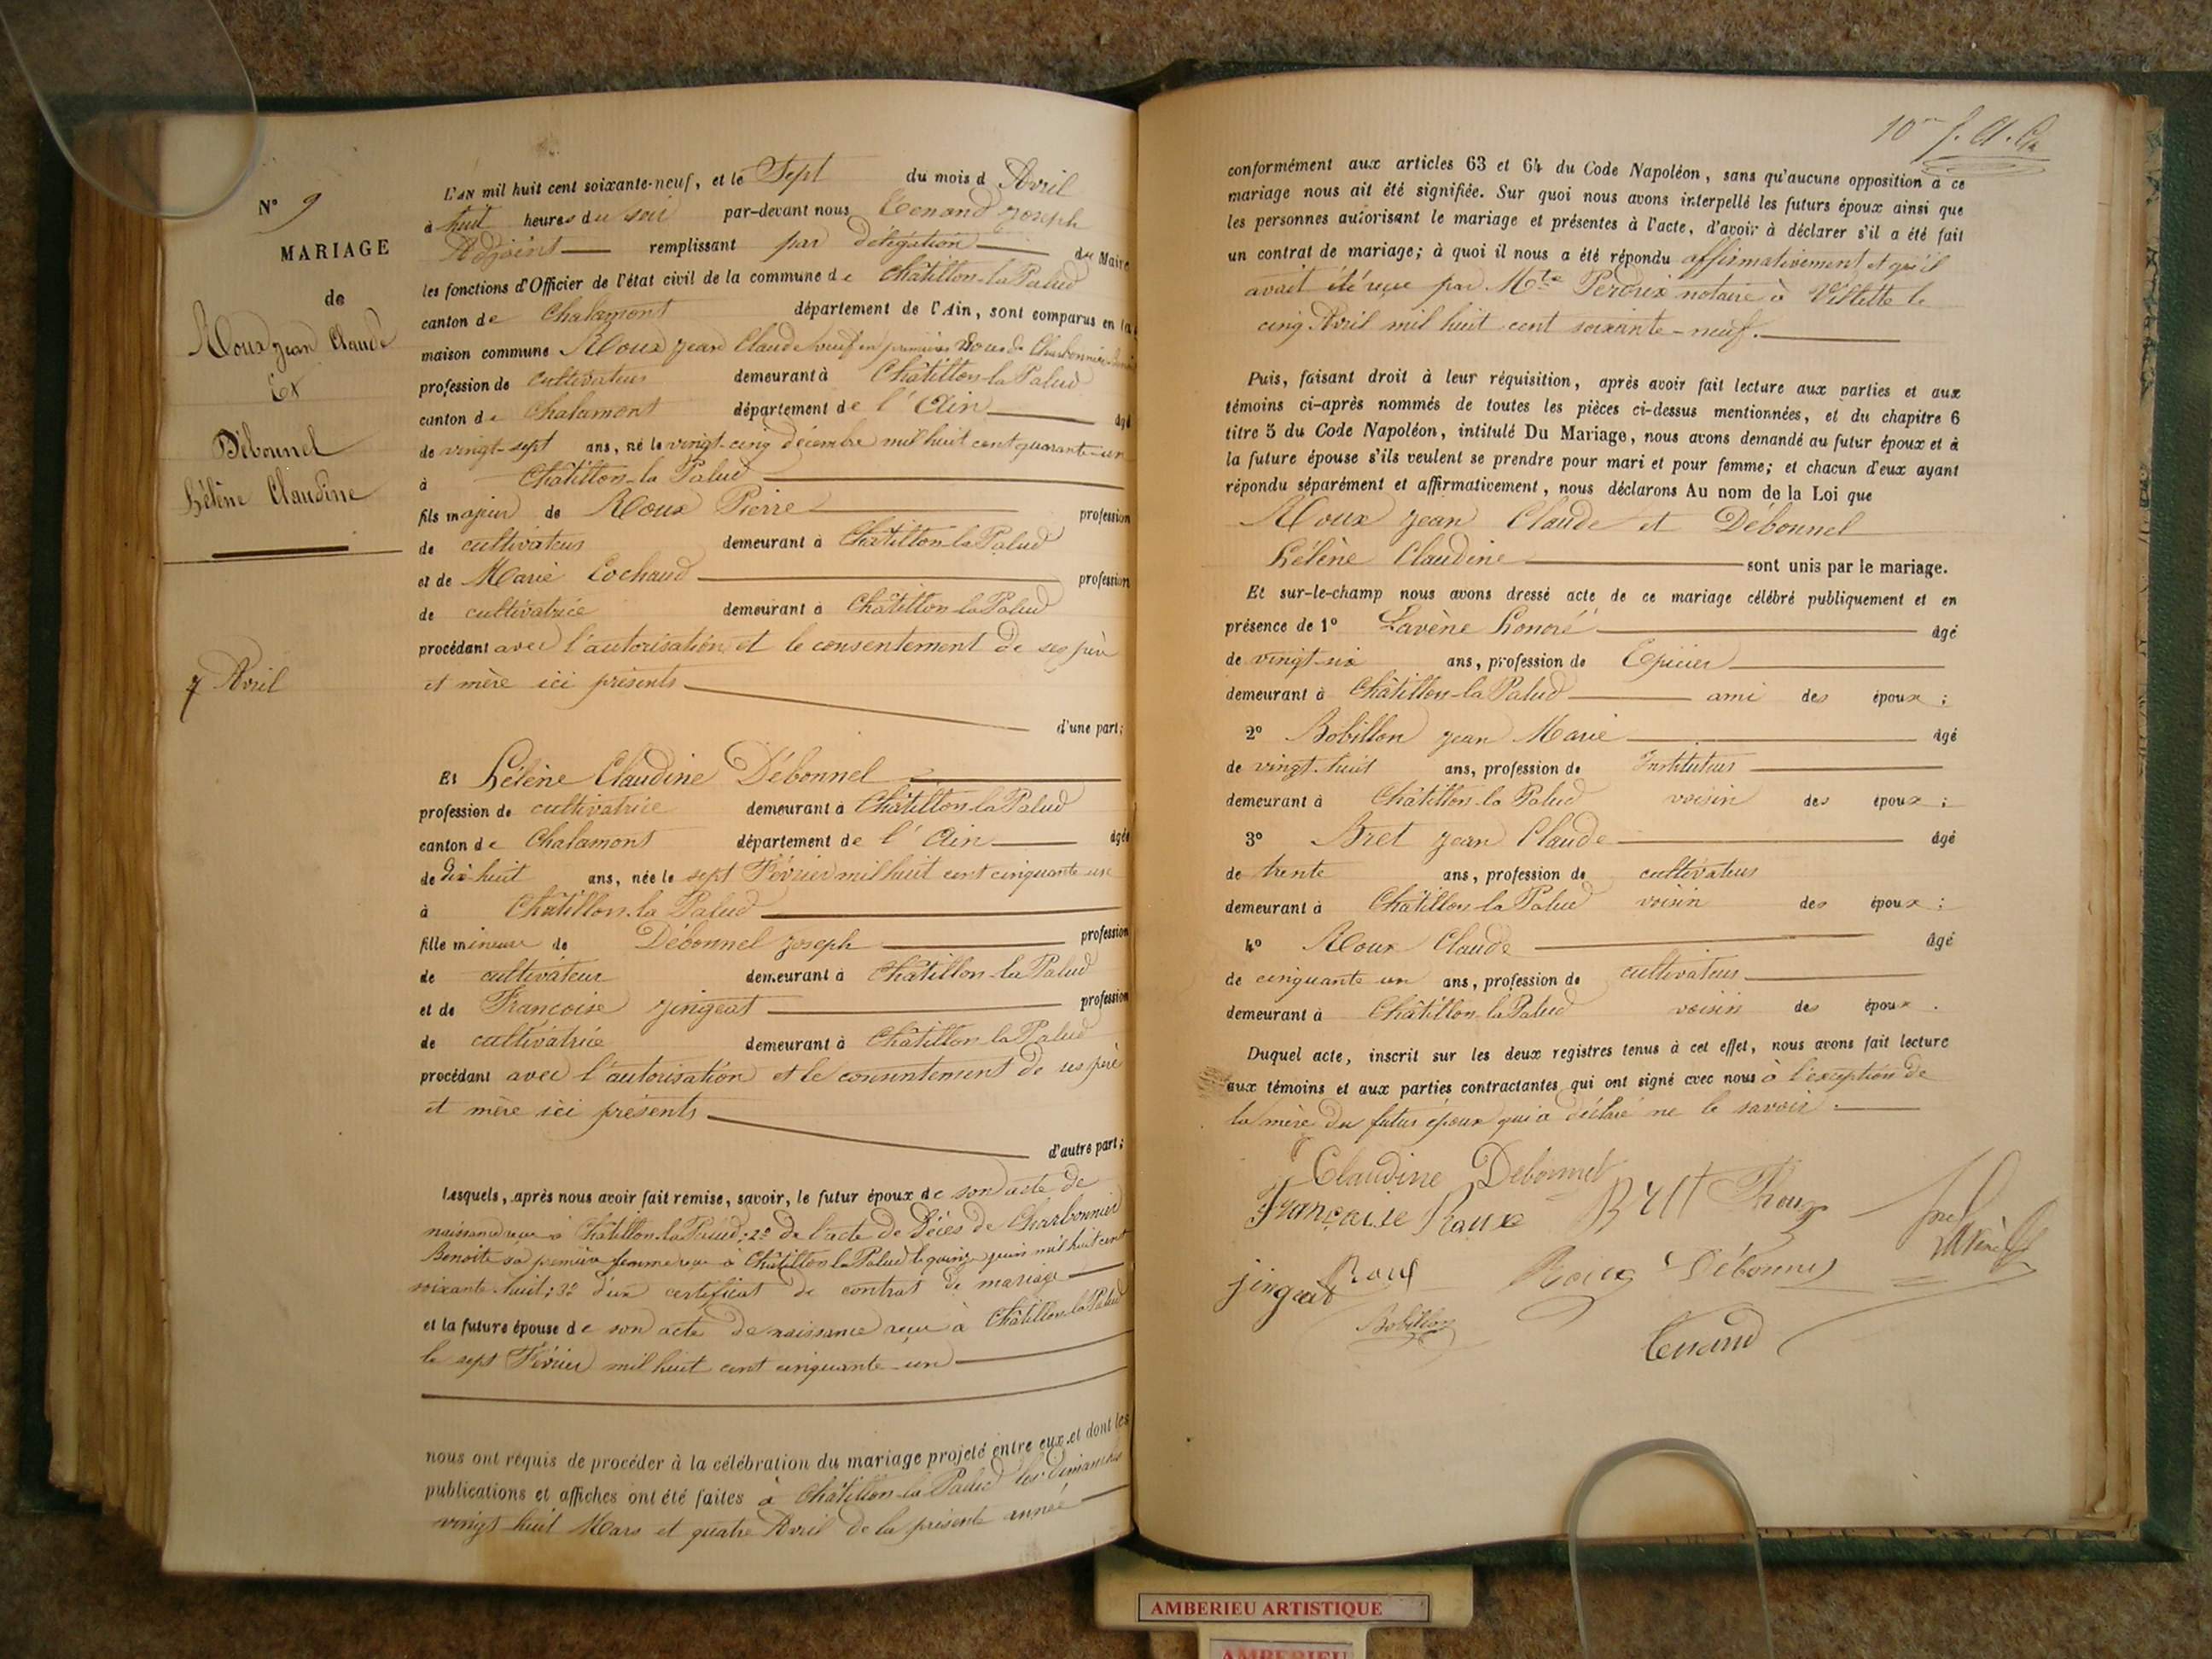 N° 9
MARIAGE
de
Roux Jean Claude
Et
Débonnel
Hélène Claudine
7 Avril
L'AN mil huit cent soixante-neuf, et le Sept du mois d Avril
à huit heures du soir par-devant nous Tenand Joseph
Adjoint remplissant par délégation du Maire
les fonctions d'Officier de l'état civil de la commune de Châtillon-la-Palud
canton de Chalamont département de l'Ain, sont comparus en la
maison commune Roux Jean Claude veuf en premières Noces de Charbonnier Benoite
profession de cultivateur demeurant à Châtillon-la-Palud
canton de Chalamont département de l'Ain âgé
de vingt-sept ans, né le vingt-cinq décembre mil huit cent quarante-un
à Châtillon-la-Palud
fils majeur de Roux Pierre profession
de cultivateur demeurant à Châtillon-la-Palud
et de Marie Cochaud profession
de cultivatrice demeurant à Châtillon-la-Palud
procédant avec l'autorisation et le consentement de ses père
et mère ici présents
d'une part;
Et Hélène Claudine Débonnel
profession de cultivatrice demeurant à Châtillon-la-Palud
canton de Chalamont département de l'Ain âgée
de dix-huit ans, née le sept Février mil huit cent cinquante-un
à Châtillon-la-Palud
fille mineure de Débonnel Joseph profession
de cultivateur demeurant à Châtillon-la-Palud
et de Françoise Jingeat profession
de cultivatrice demeurant à Châtillon-la-Palud
procédant avec l'autorisation et le consentement de ses père
et mère ici présents
d'autre part;
Lesquels, après nous avoir fait remise, savoir, le futur époux de son acte de
naissance reçu à Châtillon-la-Palud; 2° de l'acte de décès de Charbonnier
Benoite sa première femme reçu à Châtillon-la-Palud le quinze juin mil huit cent
soixante-huit; 3° d'un certificat de contrat de mariage
et la future épouse de son acte de naissance reçu à Châtillon-la-Palud
le sept Février mil huit cent cinquante-un
nous ont requis de procéder à la célébration du mariage projeté entre eux et dont les
publications et affiches ont été faites à Châtillon-la-Palud les dimanches
vingt-huit Mars et quatre Avril de la présente année
conformément aux articles 63 et 64 du Code Napoléon, sans qu'aucune opposition à ce
mariage nous ait été signifiée. Sur quoi nous avons interpellé les futurs époux ainsi que
les personnes autorisant le mariage et présentes à l'acte, d'avoir à déclarer s'il a été fait
un contrat de mariage; à quoi il nous a été répondu affirmativement et qu'il
avait été reçu par Mtre Perdrix notaire à Villette le
cinq Avril mil huit cent soixante-neuf.
Puis, faisant droit à leur réquisition, après avoir fait lecture aux parties et aux
témoins ci-après nommés de toutes les pièces ci-dessus mentionnées, et du chapitre 6
titre 5 du Code Napoléon, intitulé Du Mariage, nous avons demandé au futur époux et à
la future épouse s'ils veulent se prendre pour mari et pour femme; et chacun d'eux ayant
répondu séparément et affirmativement, nous déclarons Au nom de la Loi que
Roux Jean Claude et Débonnel
Hélène Claudine sont unis par le mariage.
Et sur-le-champ nous avons dressé acte de ce mariage célébré publiquement et en
présence de 1° Lavène Honoré âgé
de vingt-six ans, profession de Epicier
demeurant à Châtillon-la-Palud ami des époux;
2° Bobillon Jean Marie âgé
de vingt-huit ans, profession de Instituteur
demeurant à Châtillon-la-Palud voisin des époux;
3° Bret Jean Claude âgé
de trente ans, profession de cultivateur
demeurant à Châtillon-la-Palud voisin des époux;
4° Roux Claude âgé
de cinquante-un ans, profession de cultivateur
demeurant à Châtillon-la-Palud voisin des époux.
Duquel acte, inscrit sur les deux registres tenus à cet effet, nous avons fait lecture
aux témoins et aux parties contractantes qui ont signé avec nous à l'exception de
la mère du futur époux qui a déclaré ne le savoir.
Claudine Debonnel
Françoise Roux
jingeat Roux Roux Débonnel
Bobillon
Tenand
AMBERIEU ARTISTIQUE
AMBERIEU